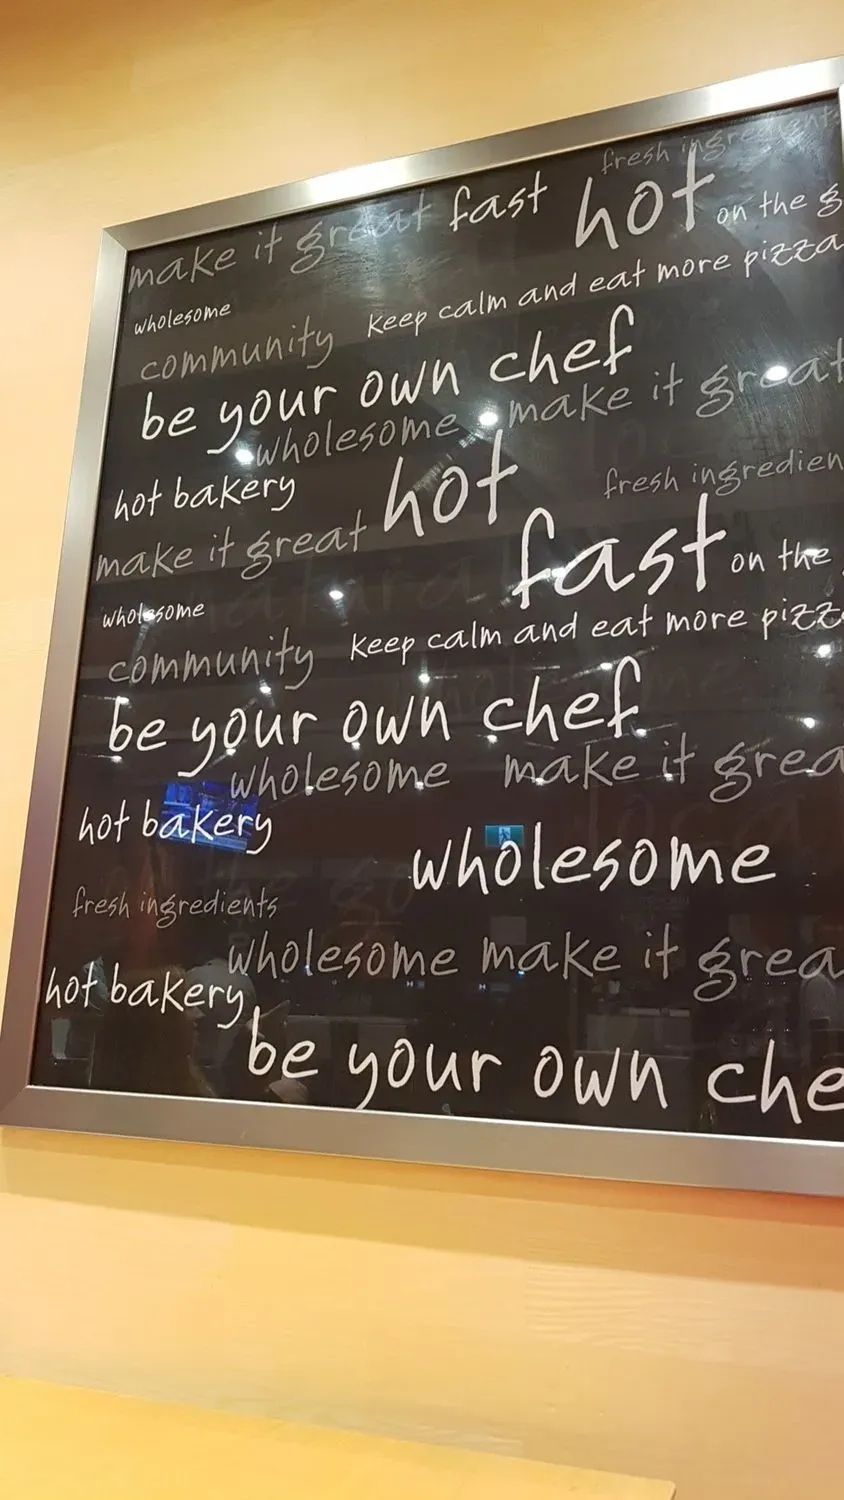 fresh ingredients
make it great fast hot on the g
wholesome keep calm and eat more pizza
community
be your own chef
wholesome make it great
hot bakery hot fresh ingredien
make it great fast on the
wholesome
community keep calm and eat more pizz
be your own chef
wholesome make it grea
hot bakery
wholesome
fresh ingredients
wholesome make it grea
hot bakery
be your own che